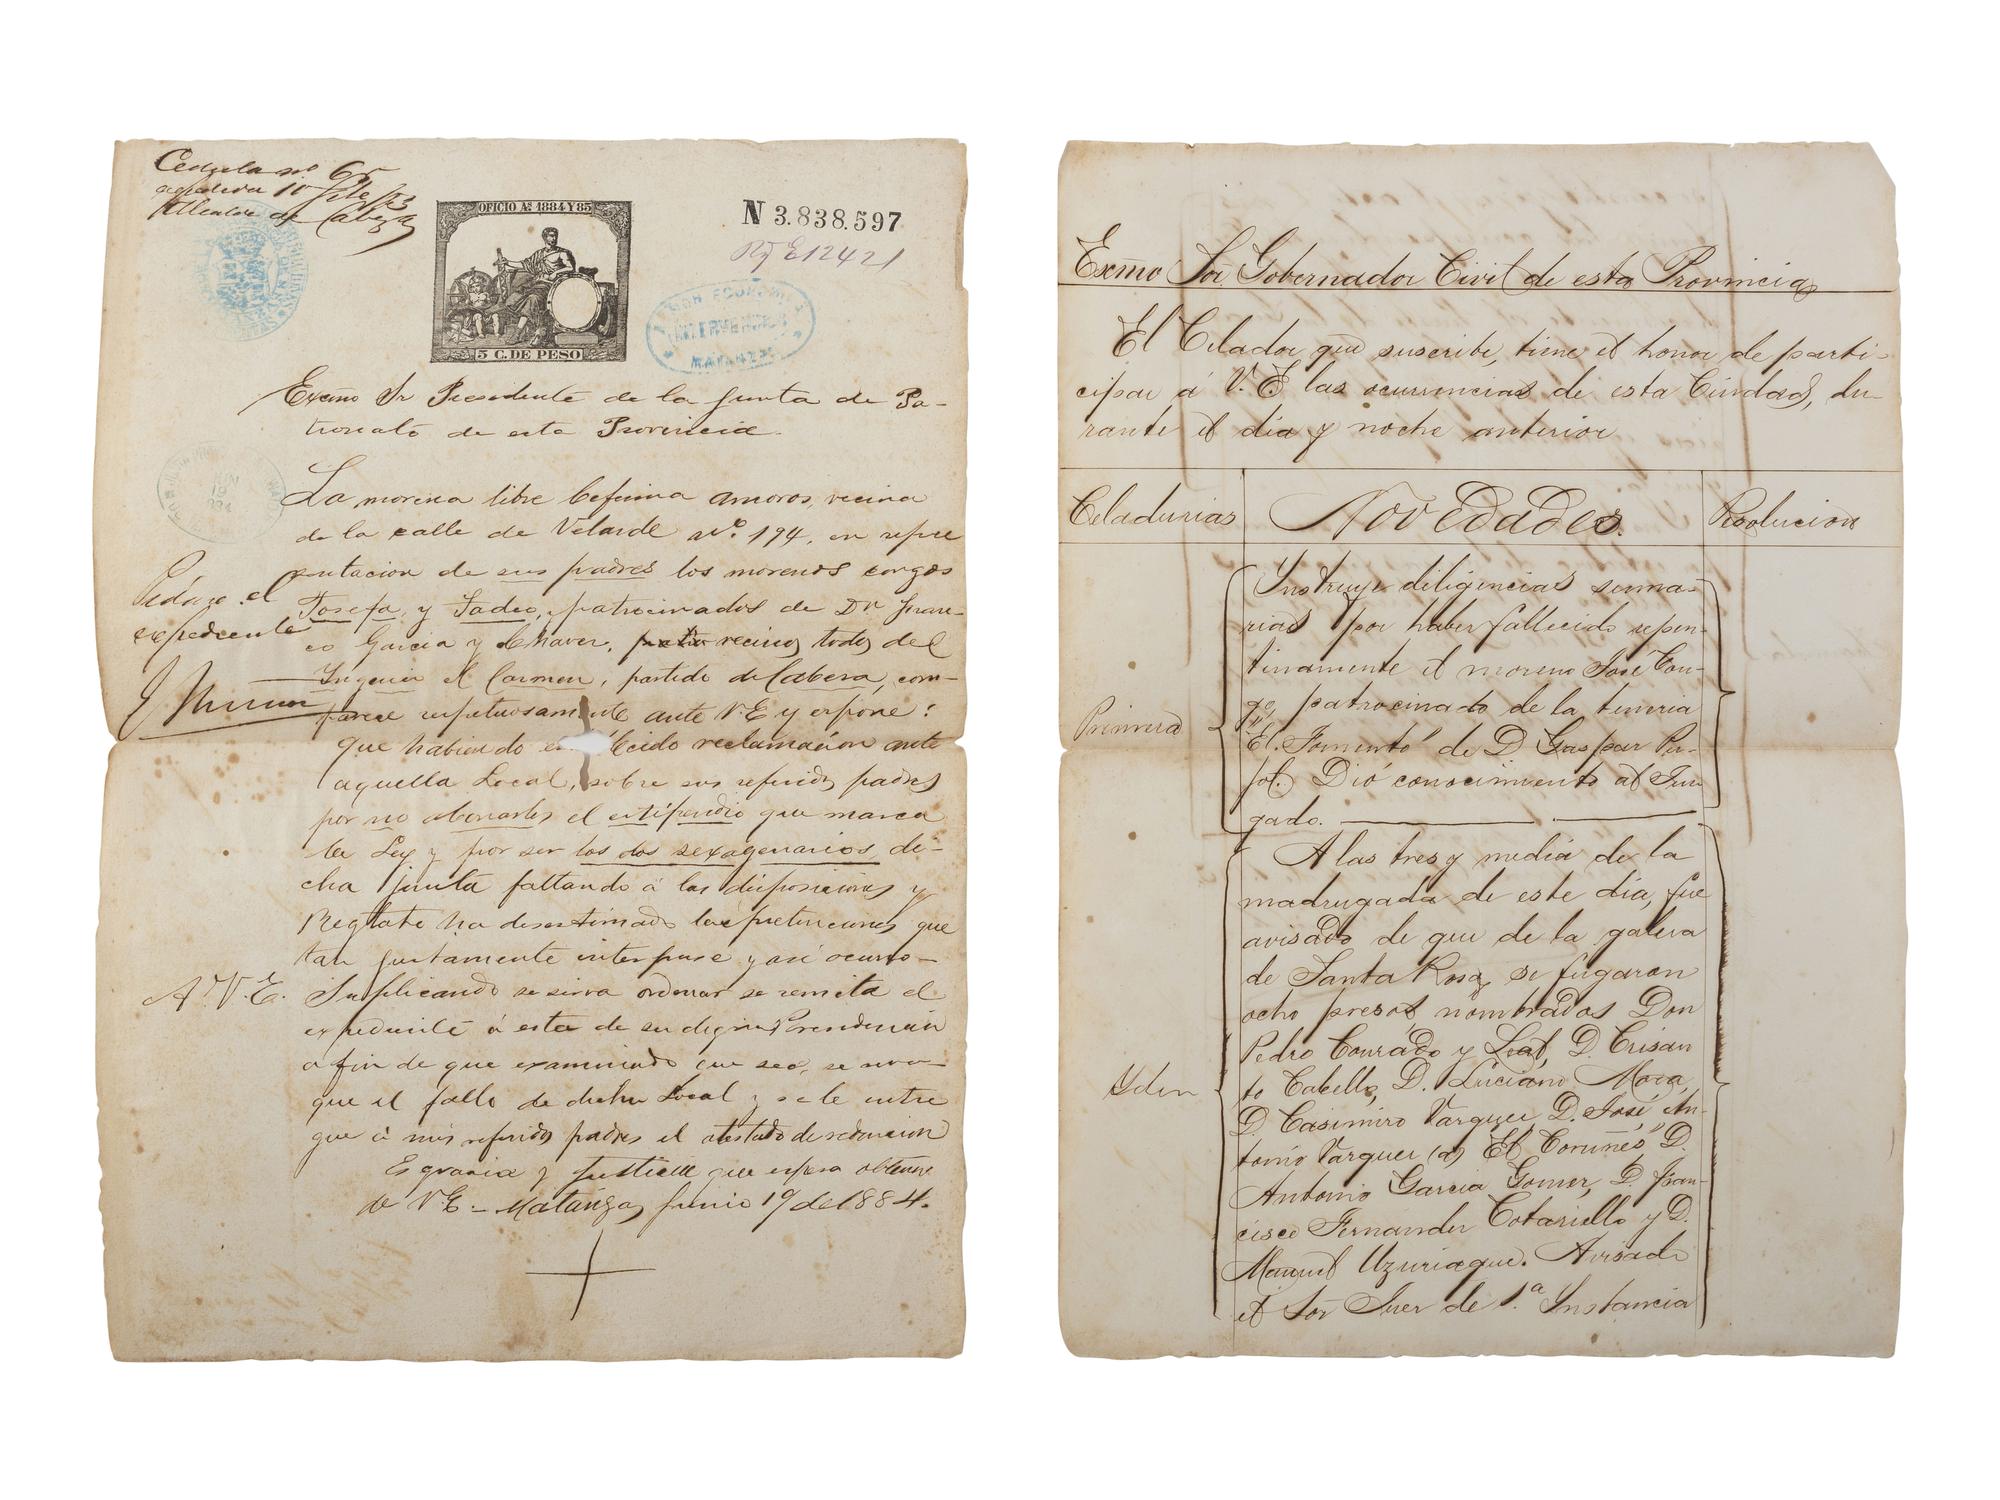 Cedula nº 65
Alcalde de Cabezas
OFICIO Aº 1884 Y 85
5 C. DE PESO
N 3.838.597
Rº E 12421
INTERVENCION
MATANZAS
Excmo Sr Presidente de la Junta de Pa-
tronato de esta Provincia.
La morena libre Ceferina Amoros, vecina
de la calle de Velarde nº. 194, en repre
sentacion de sus padres los morenos congos
Josefa, y Tadeo, patrocinados de Dn Francis-
co Garcia y Chavez, vecinos todos del
Ingenio el Carmen, partido de Cabezas, com-
parece respetuosamente ante V.E y expone:
Pidase el
expediente
que habiendo establecido reclamacion ante
aquella Local, sobre sus referidos padres
por no abonarles el estipendio que marca
la Ley y por ser los dos sexagenarios, di-
cha junta faltando á las disposiciones y
Reglato ha desestimado las pretenciones que
tan justamente interpuse y asi ocurro-
A. V.E. Suplicando se sirva ordenar se remita el
expediente á esta de su digna Presidencia
a fin de que examinado que sea, se revo-
que el fallo de dicha Local y se le entre
gue á mis referidos padres el atestado de redencion
Es gracia y justicia que espera obtener
de V.E - Matanzas Junio 19 de 1884.
Excmo Sor Gobernador Civil de esta Provincia
El Celador que suscribe, tiene el honor de parti-
cipar á V.E las ocurrencias de esta Ciudad, du-
rante el dia y noche anterior
Celadurias Novedades. Resolucion
Primera
Instruye diligencias suma-
rias por haber fallecido repen-
tinamente el moreno José Con-
go, patrocinado de la teneria
"El Fomento" de D Gaspar Per-
fol. Dió conocimiento al Juz
gado.
Yden
A las tres y media de la
madrugada de este dia, fue
avisado de que de la galera
de Santa Rosa, se fugaron
ocho presos nombrados Don
Pedro Conrado y Leal, D. Crisan
to Cabello, D. Luciano Mora,
D. Casimiro Vazquez, D. José An-
tonio Vazquez (a) "El Coruñes" D.
Antonio Garcia Gomez, D. Fran-
cisco Fernandez Cotariello y D.
Manuel Uzuriague. Avisado
el Sor Juez de 1.ª Instancia